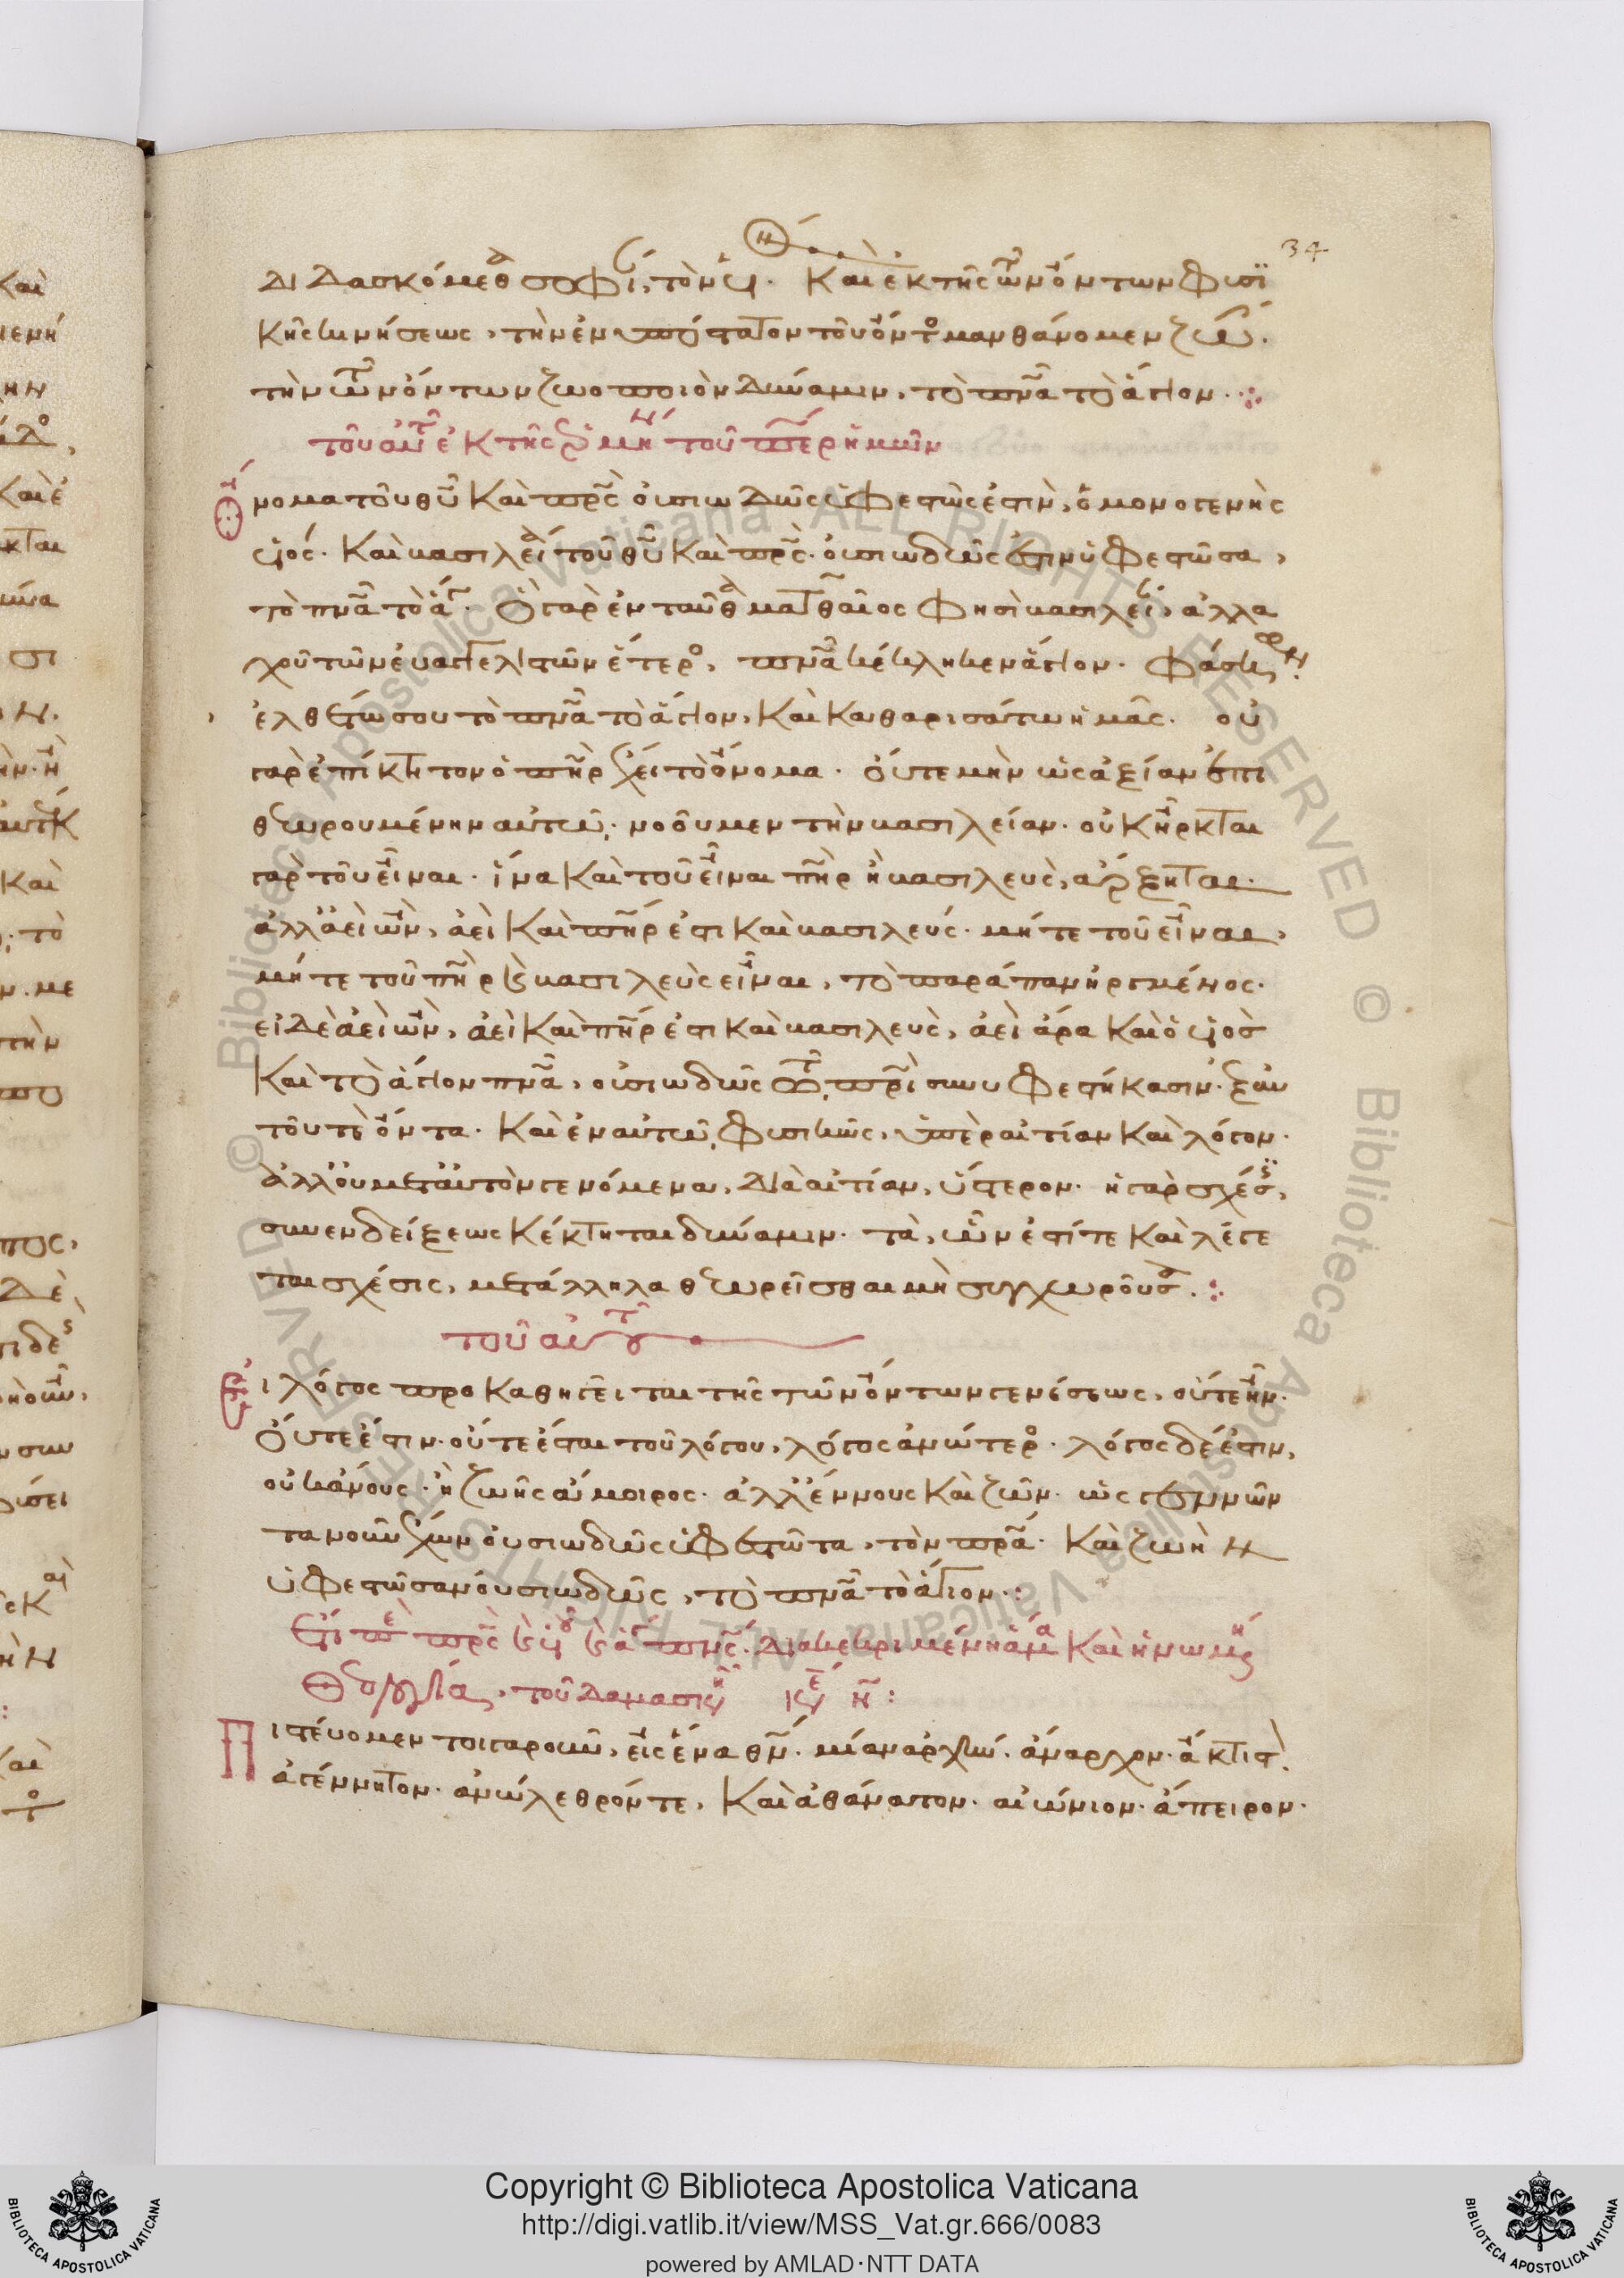 34
διδασκόμεθα σοφίαν, τὸν υἱόν. καὶ ἐκ τῆς τῶν ὄντων φυσι
κῆς κινήσεως, τὴν ἐνυπόστατον τοῦ ὄντος μανθάνομεν ζωήν.
τὴν τῶν ὄντων ζωοποιὸν δύναμιν, τὸ πνα τὸ ἅγιον.
τοῦ αὐτοῦ ἐκ τῆς ἑρμη τοῦ πάτερ ἡμῶν
Ὄνομα τοῦ θυ καὶ πρς οὐσιωδῶς ὑφεστώς ἐστιν, ὁ μονογενὴς
υἱός. καὶ βασιλεία τοῦ θυ καὶ πρς. οὐσιωδῶς ἐστιν ὑφεστῶσα,
τὸ πνα τὸ ἅγιον. ὃ γὰρ ἐνταῦθα ματθαῖος φησὶ βασιλείαν, ἀλλα
χοῦ τῶν εὐαγγελιστῶν ἕτερος, πνα κέκληκεν ἅγιον. φάσκων.
ἐλθέτω σου τὸ πνα τὸ ἅγιον, καὶ καθαρισάτω ἡμᾶς. οὐ
γὰρ ἐπίκτητον ὁ πηρ ἔχει τὸ ὄνομα. οὔτε μὴν ὡς ἀξίαν ἐπι
θεωρουμένην αὐτῷ, νοοῦμεν τὴν βασιλείαν. οὐκ ἦρκται
γὰρ τοῦ εἶναι. ἵνα καὶ τοῦ εἶναι πηρ ἢ βασιλεὺς, ἄρξηται.
ἀλλ' ἀεὶ ὢν, ἀεὶ καὶ πηρ ἐστι καὶ βασιλεύς. μήτε τοῦ εἶναι,
μήτε τοῦ πηρ ἢ βασιλεὺς εἶναι, τὸ παράπαν ἠργμένος.
εἰ δὲ ἀεὶ ὢν, ἀεὶ καὶ πηρ ἐστι καὶ βασιλεὺς, ἀεὶ ἄρα καὶ ὁ υἱὸς
καὶ τὸ ἅγιον πνα, οὐσιωδῶς τῷ πρι συνυφεστήκασιν. ἐξ αὐ
τοῦ τε ὄντα. καὶ ἐν αὐτῷ φυσικῶς, ὑπὲρ αἰτίαν καὶ λόγον.
ἀλλ' οὐ μετ' αὐτὸν γενόμενα, δι' αἰτίαν, ὕστερον. ἡ γὰρ σχέσις,
συνενδείξεως κέκτηται δύναμιν. τὰ, ὧν ἐστί τε καὶ λέγε
ται σχέσις, μετάλληλα θεωρεῖσθαι μὴ συγχωροῦσα.
τοῦ αὐτοῦ
Εἰ λόγος προκαθηγεῖται τῆς τῶν ὄντων γενέσεως, οὔτε ἦν.
οὔτε ἔστιν. οὔτε ἔσται τοῦ λόγου, λόγος ἀνώτερος. λόγος δέ ἐστιν,
οὐκ ἄνους. ἢ ζωῆς ἄμοιρος. ἀλλ' ἔννους καὶ ζῶν. ὡς γεννῶν
τα νοῦν ἔχων οὐσιωδῶς ὑφεστῶτα, τὸν πρα. καὶ ζωὴν
ὑφεστῶσαν οὐσιωδῶς, τὸ πνα τὸ ἅγιον.
Ἔτι περὶ πρς καὶ υἱοῦ καὶ ἁγίου πνς. διακεκριμένη ἅμα καὶ ἡνωμένη
θεολογία, τοῦ δαμασκηνοῦ κε η:
Πιστεύομεν τοιγαροῦν, εἰς ἕνα θν. μίαν ἀρχὴν. ἄναρχον. ἄκτιστον.
ἀγέννητον. ἀνώλεθρόν τε, καὶ ἀθάνατον. αἰώνιον. ἄπειρον.
Copyright © Biblioteca Apostolica Vaticana
http://digi.vatlib.it/view/MSS_Vat.gr.666/0083
powered by AMLAD·NTT DATA